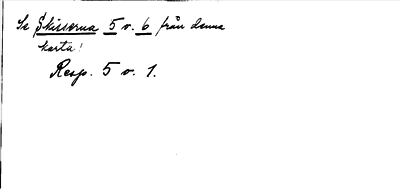 Se Skisserna 5 o. 6 från denna
karta!
Resp. 5 o. 1.